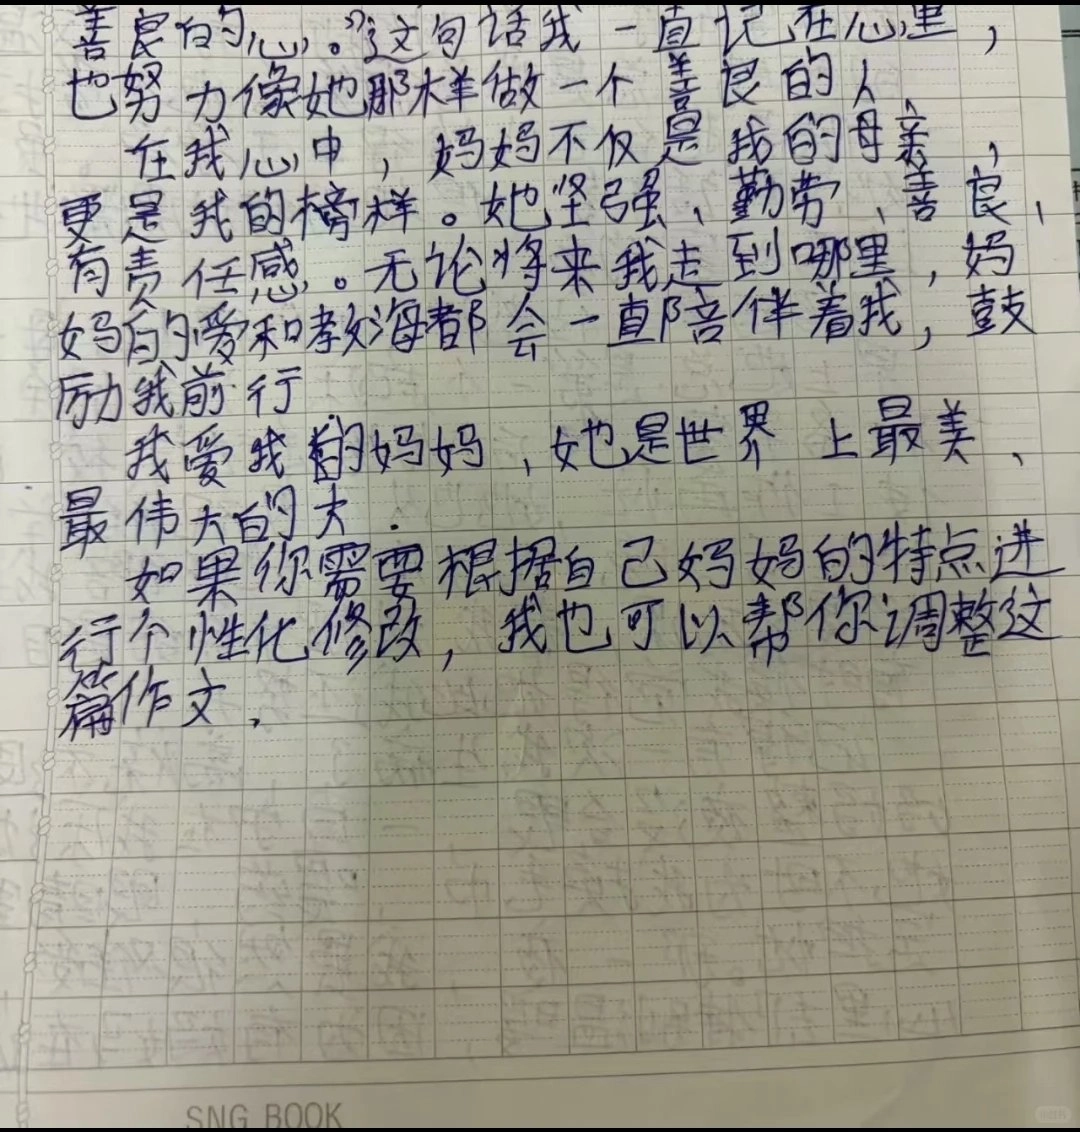 善良的心。”这句话我一直记在心里，
也努力像她那样做一个善良的人，
在我心中，妈妈不仅是我的母亲，
更是我的榜样。她坚强、勤劳、善良、
有责任感。无论将来我走到哪里，妈
妈的爱和教海都会一直陪伴着我，鼓
励我前行
我爱我的妈妈，她是世界上最美、
最伟大的大.
如果你需要根据自己妈妈的特点进
行个性化修改，我也可以帮你调整这
篇作文.
SNG BOOK